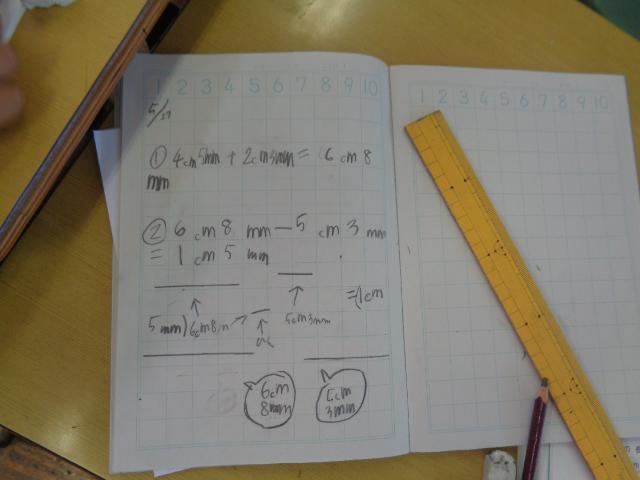 1 2 3 4 5 6 7 8 9 10
1 2 3 4 5 6 7 8 9 10
5/27
① 4cm 5mm + 2cm 3mm = 6 cm 8
mm
② 6 cm 8 mm — 5 cm 3 mm
= 1 cm 5 mm
=(1cm
5mm) 6cm8m
5cm3mm
6cm
8mm
5cm
3mm